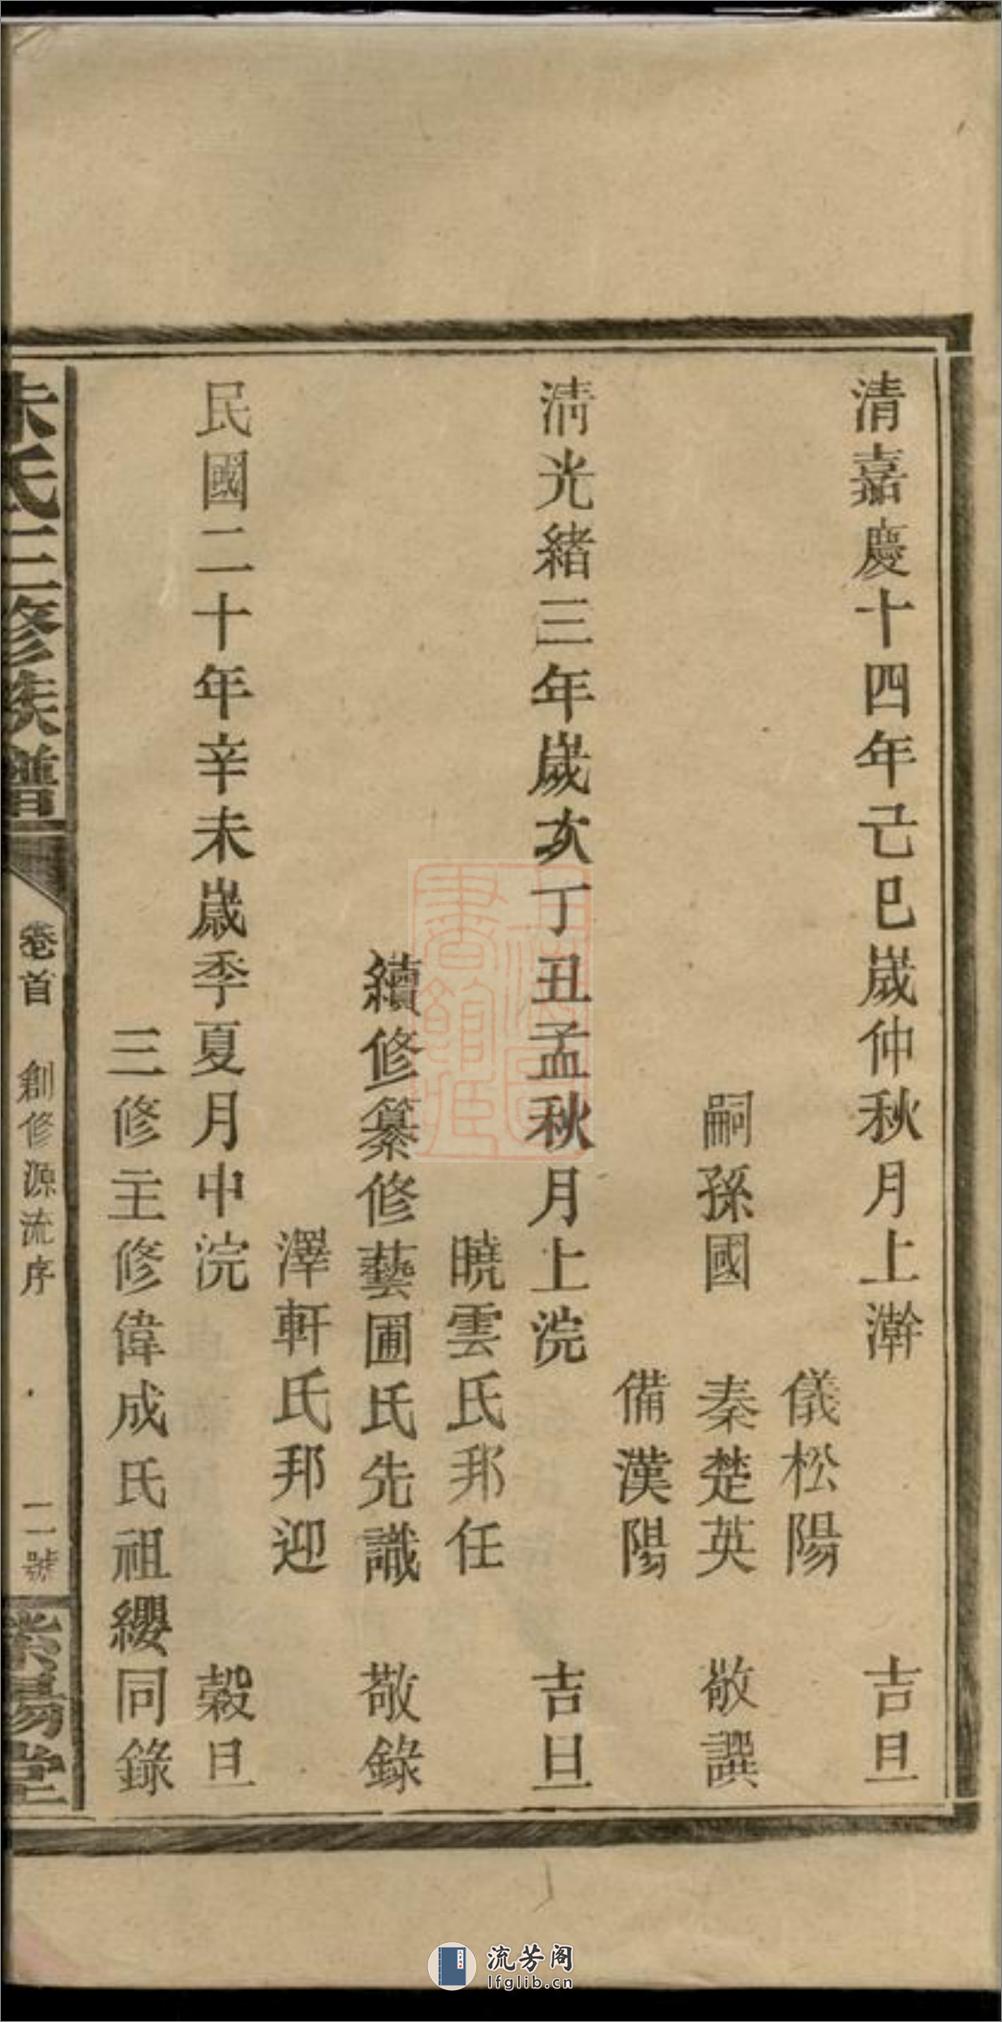 清嘉慶十四年己巳歲仲秋月上澣 吉旦
儀松陽
嗣孫國 秦楚英 敬譔
備漢陽
清光緒三年歲次丁丑孟秋月上浣 吉旦
曉雲氏邦任
續修纂修藝圃氏先識 敬錄
澤軒氏邦迎
民國二十年辛未歲季夏月中浣 穀旦
三修主修偉成氏祖纓同錄
朱氏三修族譜 卷首 創修源流序 二號 紫陽堂
流芳阁
lfglib.cn